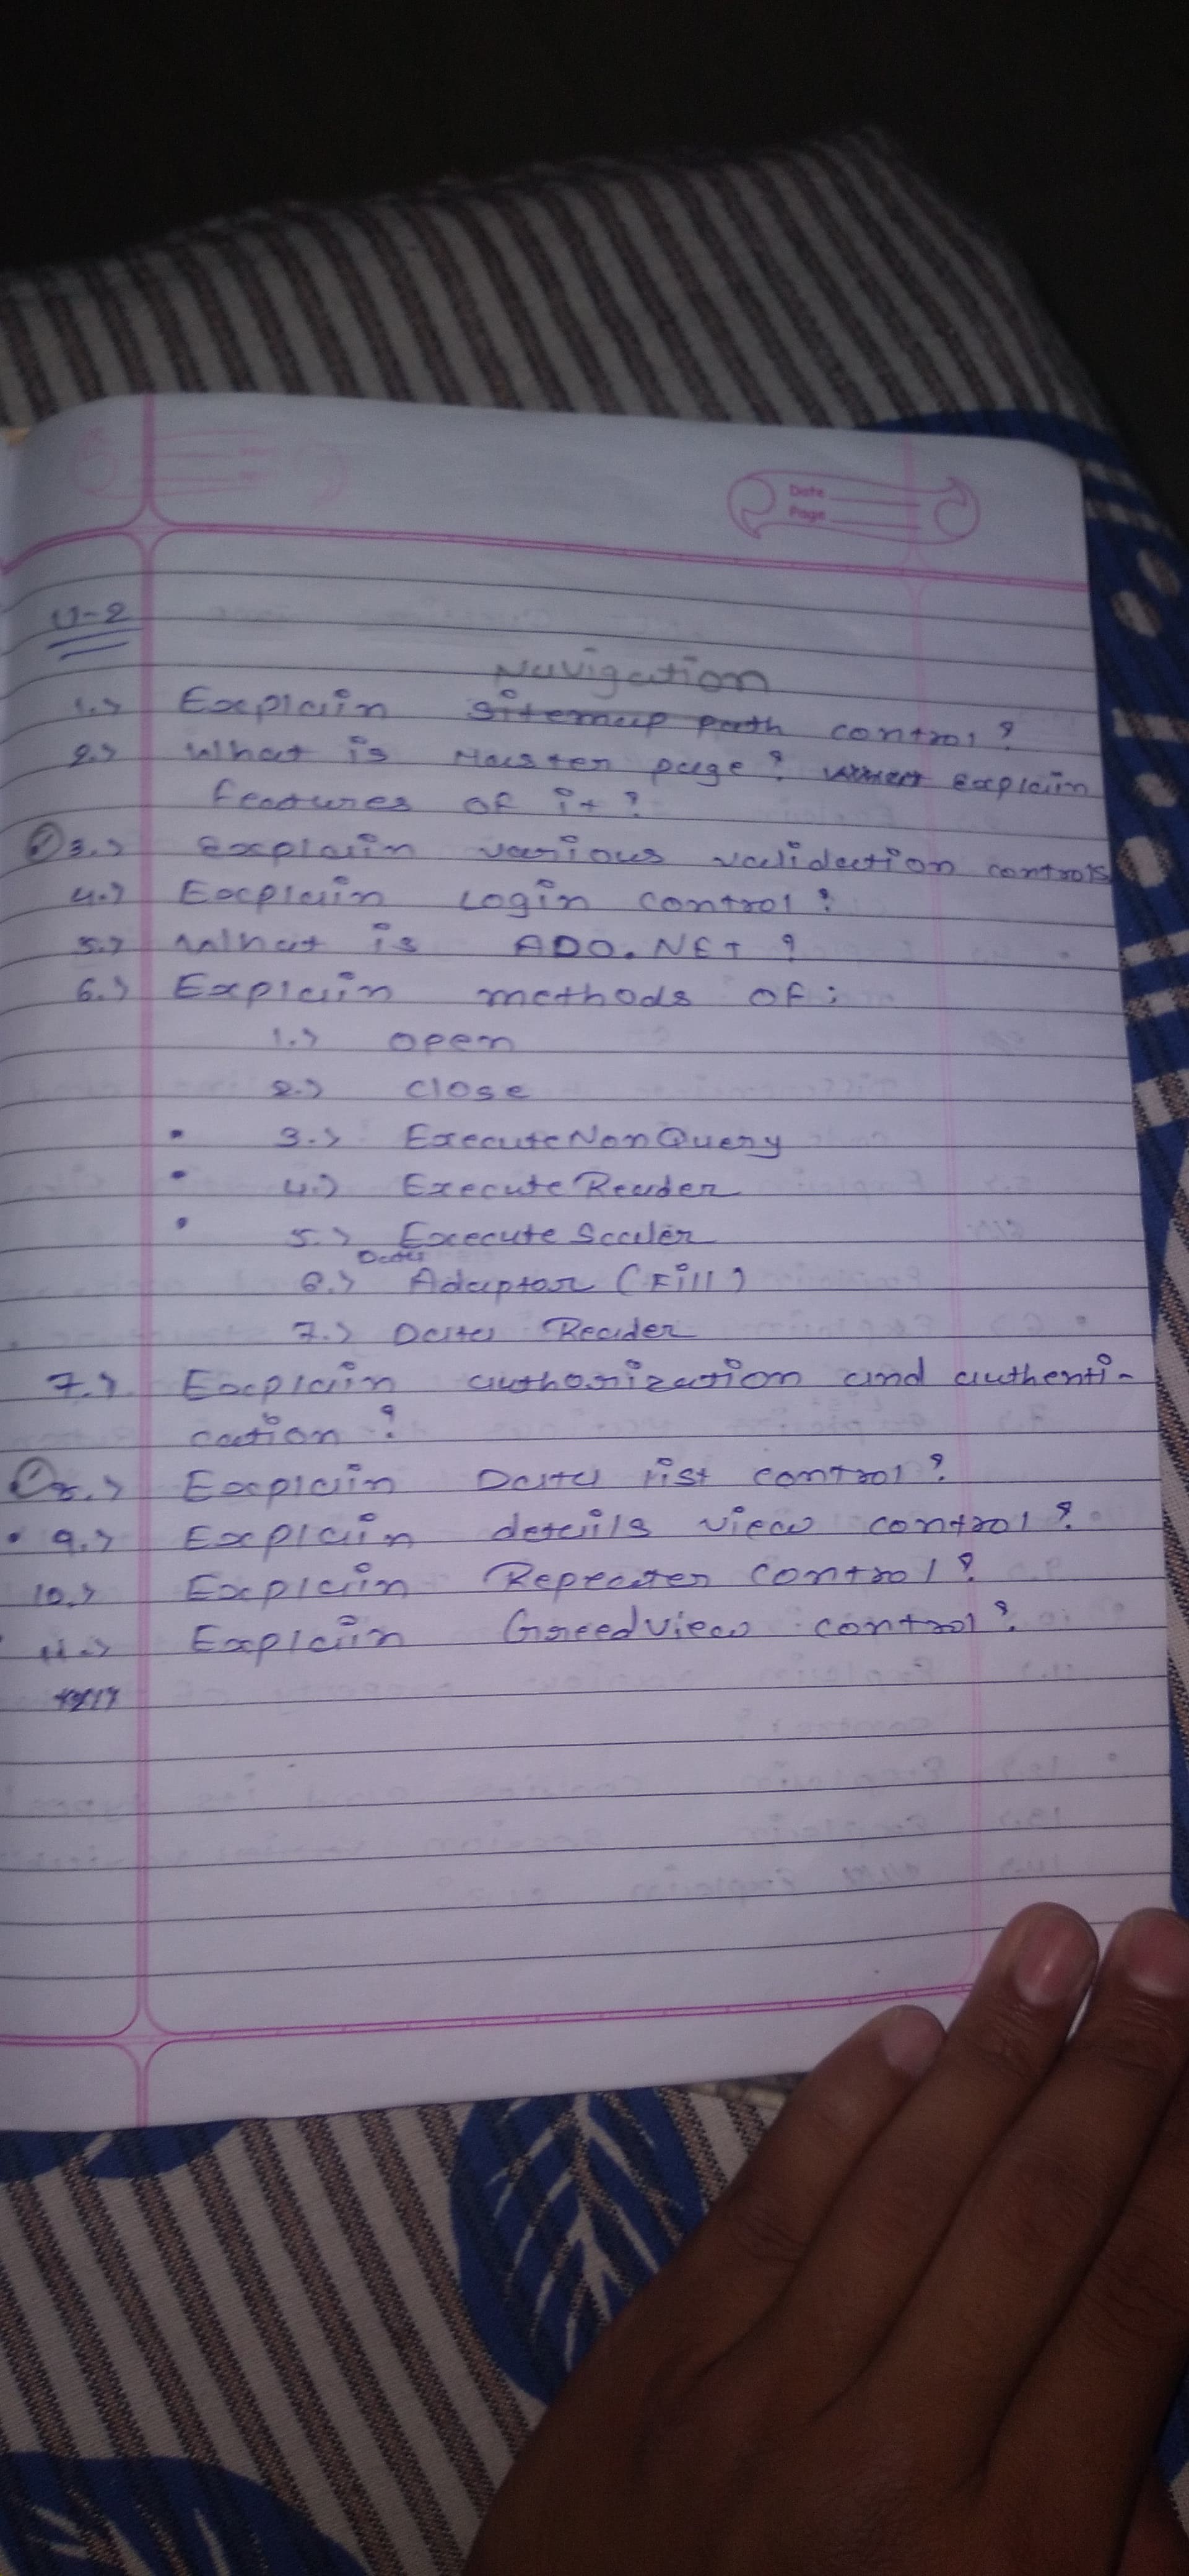 Date
Page
U-2
Navigation
1.> Explain sitemap path control?
2.> What is Master page? Explain
features of it?
3.> explain various validation controls
4.> Explain Login control?
5.> What is ADO.NET?
6.> Explain methods of:
1.> open
2.> close
• 3.> ExecuteNonQuery
• 4.> Execute Reader
• 5.> Execute Scaler
Data
6.> Adaptor (Fill)
7.> Data Reader
7.> Explain authorization and authenti-
cation?
8.> Explain Data list control?
• 9.> Explain details view control?
10.> Explain Repeater control?
• 11.> Explain Greedview control?